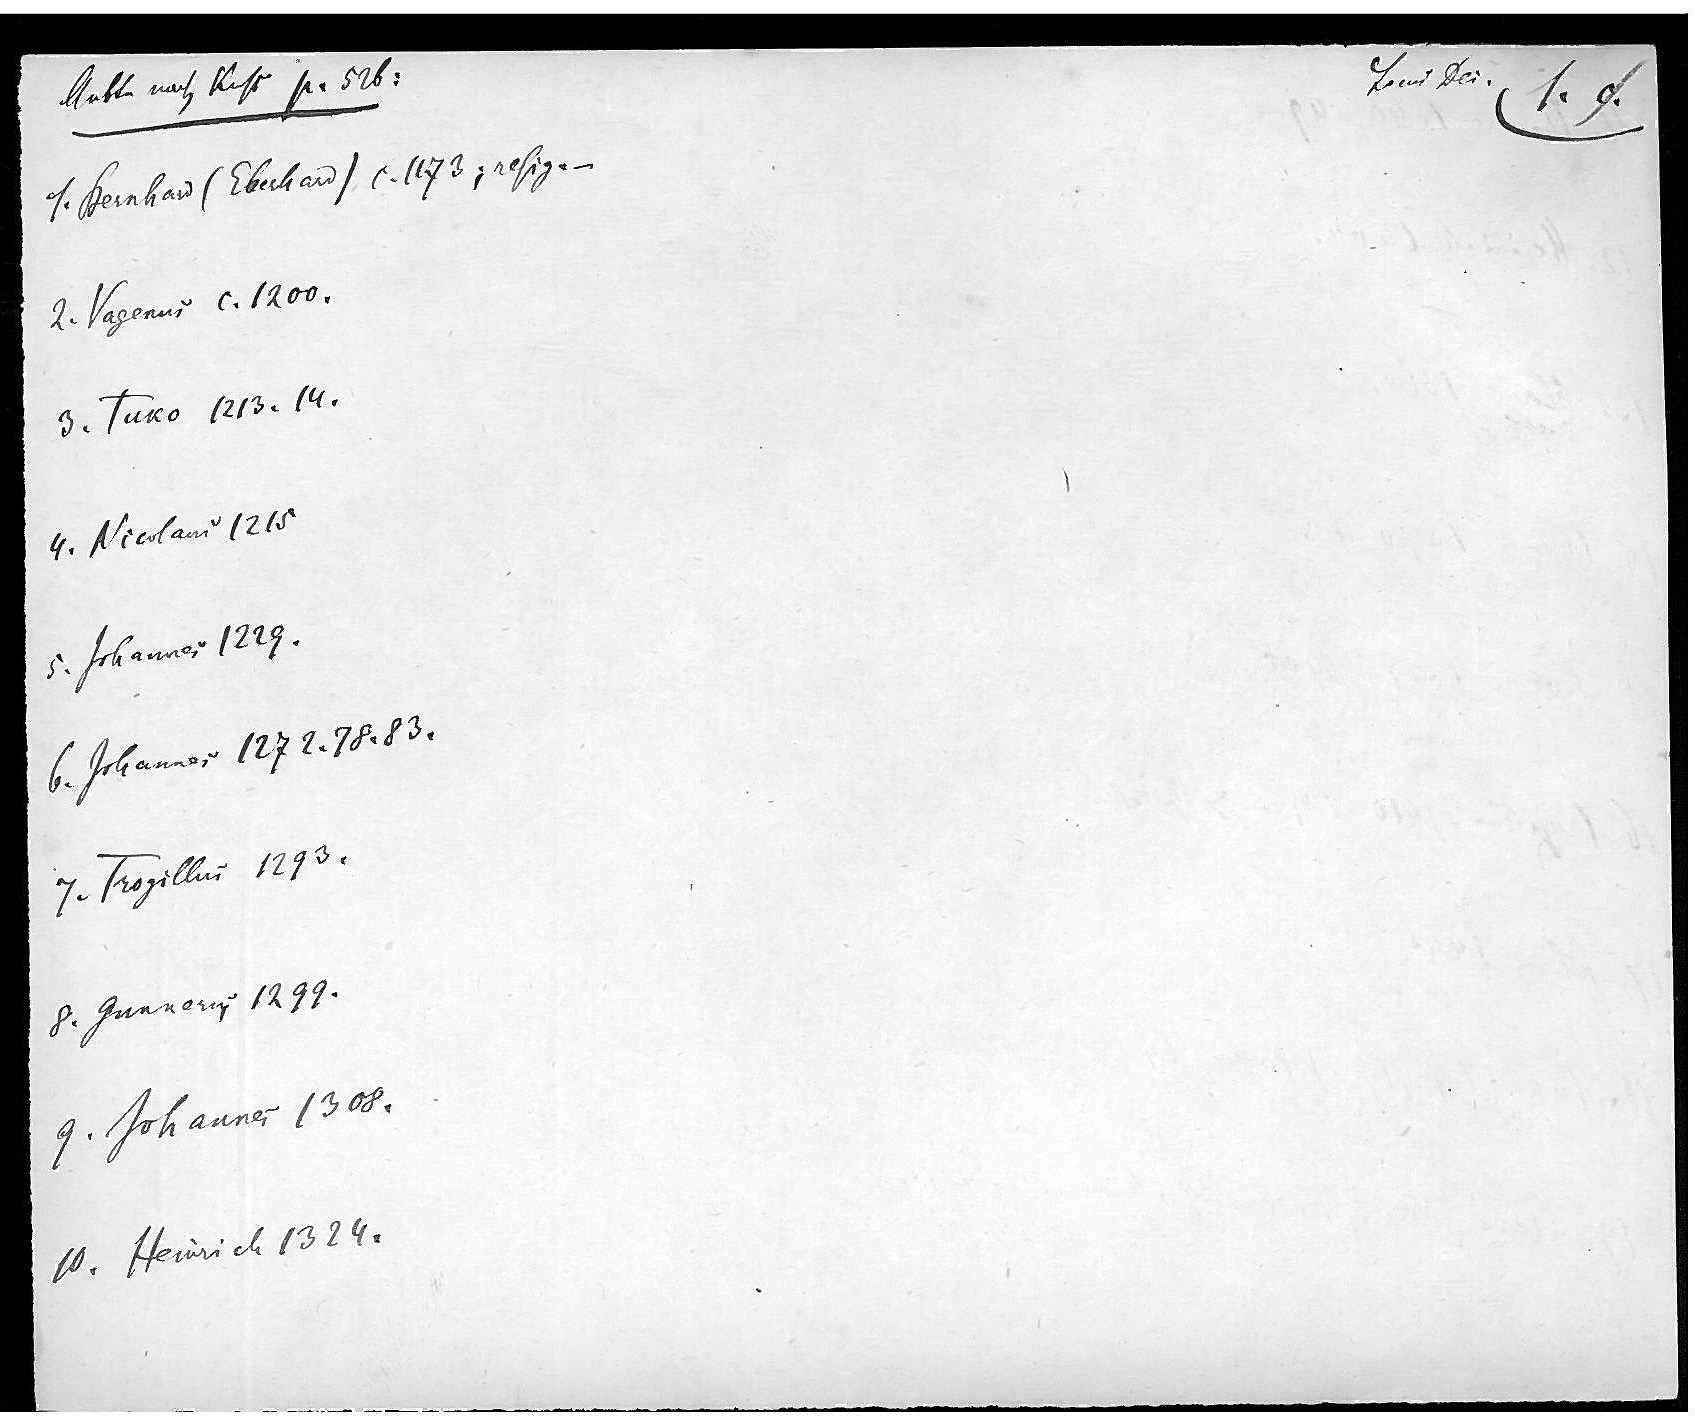 Aebte nach Kuss p. 526:
Locus Dei. 1. d.
1. Bernhard (Eberhard) c. 1173; resig.—
2. Vagenus c. 1200.
3. Tuko 1213. 14.
4. Nicolaus 1215
5. Johannes 1229.
6. Johannes 1272. 78. 83.
7. Trogillus 1293.
8. Gunnerus 1299.
9. Johannes 1308.
10. Heinrich 1324.